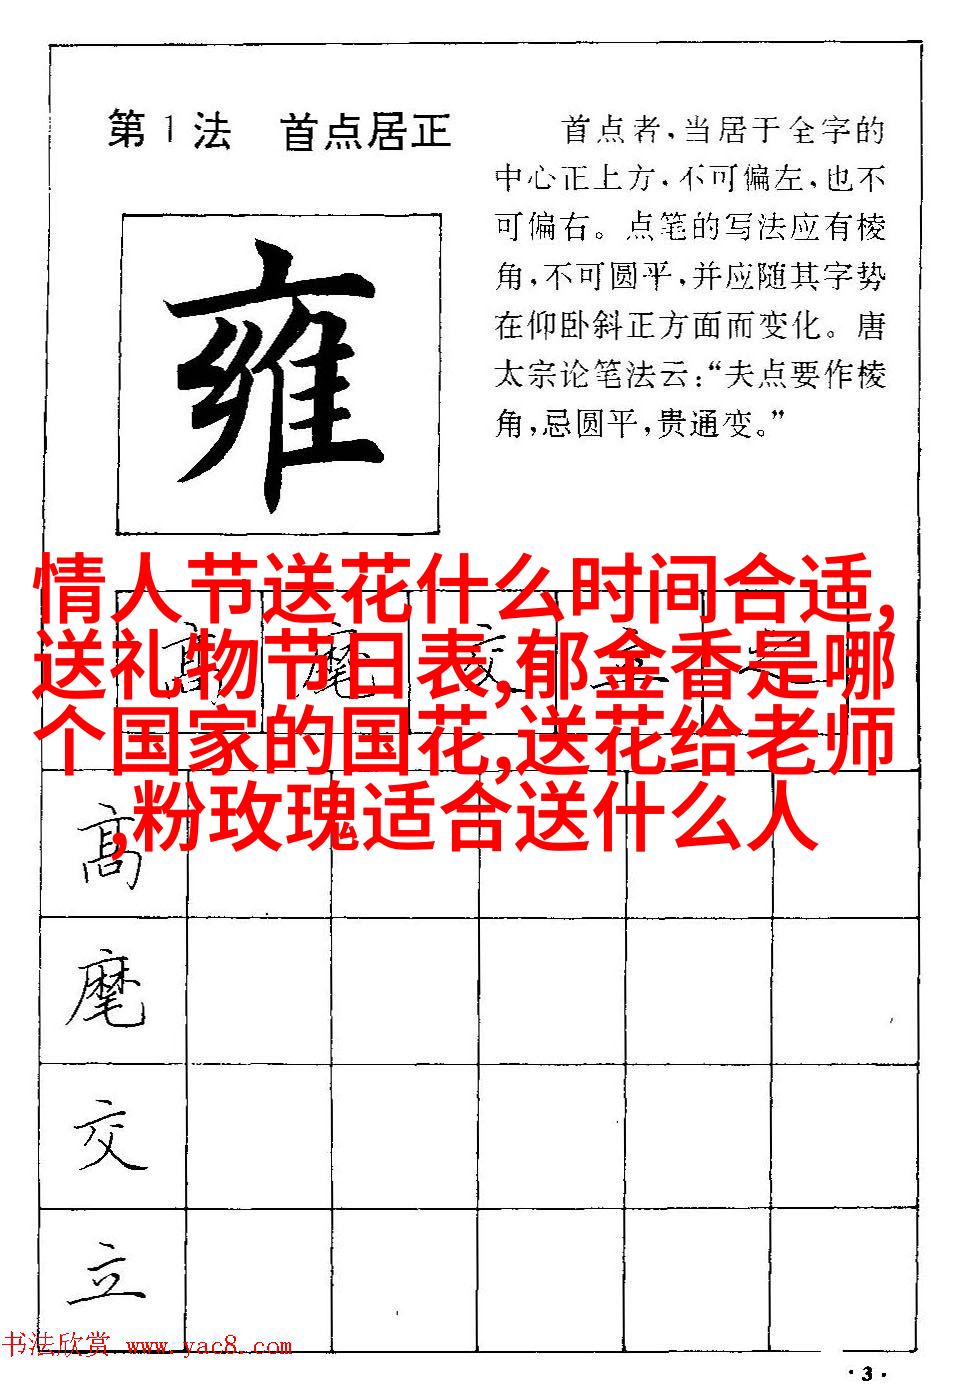 第1法 首点居正
首点者，当居于全字的
中心正上方，不可偏左，也不
可偏右。点笔的写法应有棱
角，不可圆平，并应随其字势
在仰卧斜正方面而变化。唐
太宗论笔法云：“夫点要作棱
角，忌圆平，贵通变。”
雍
情人节送花什么时间合适,
送礼物节日表,郁金香是哪
个国家的国花,送花给老师
,粉玫瑰适合送什么人
高 麾 交 立
高
麾
交
立
书法欣赏 www.yac8.com
·3·